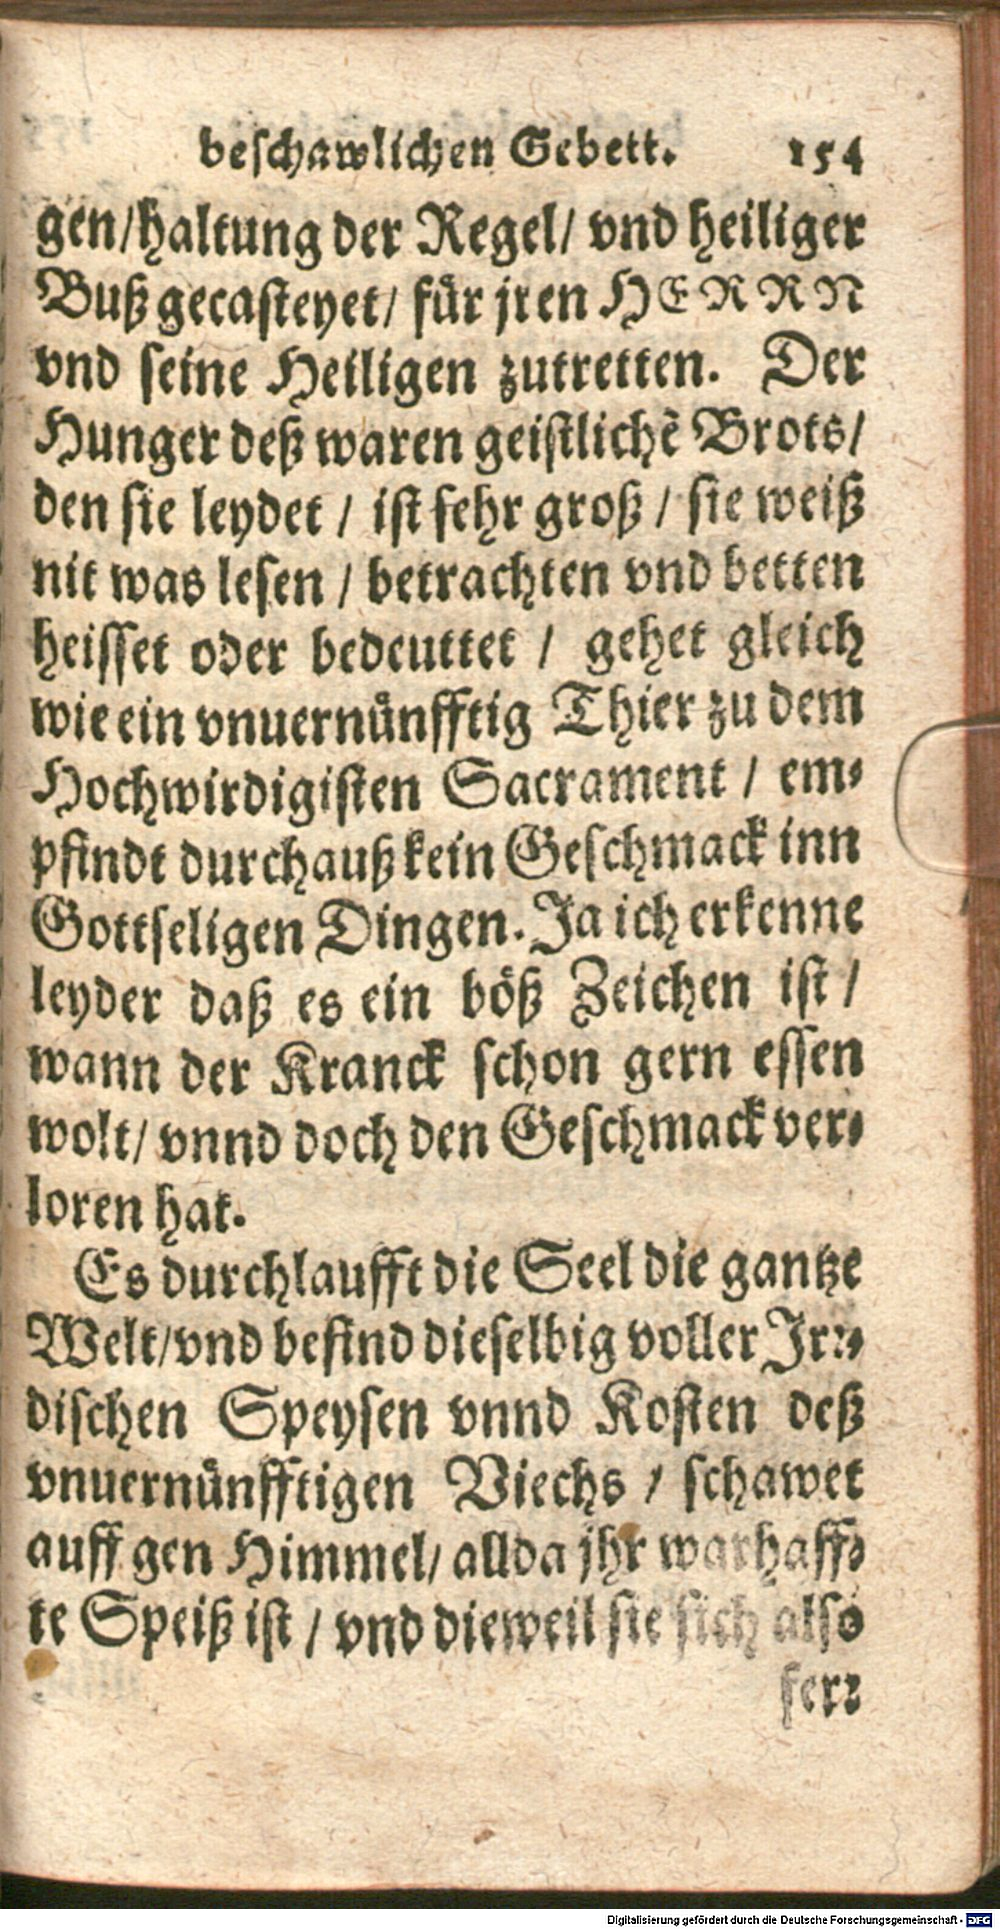 beschawlichen Gebett. 154
gen/haltung der Regel/ vnd heiliger
Buß gecasteyet/ für jren HERRN
vnd seine Heiligen zutretten. Der
Hunger deß waren geistlichẽ Brots/
den sie leydet / ist sehr groß / sie weiß
nit was lesen / betrachten vnd betten
heisset oder bedeuttet / gehet gleich
wie ein vnuernünfftig Thier zu dem
Hochwirdigisten Sacrament / em-
pfindt durchauß kein Geschmack inn
Gottseligen Dingen. Ja ich erkenne
leyder daß es ein böß Zeichen ist /
wann der Kranck schon gern essen
wolt/ vnnd doch den Geschmack ver-
loren hat.
Es durchlaufft die Seel die gantze
Welt/vnd befind dieselbig voller Irr-
dischen Speysen vnnd Kosten deß
vnuernünfftigen Viechs / schawet
auff gen Himmel/ allda jhr warhaff-
te Speiß ist / vnd dieweil sie sich also
ferr
Digitalisierung gefördert durch die Deutsche Forschungsgemeinschaft - DFG